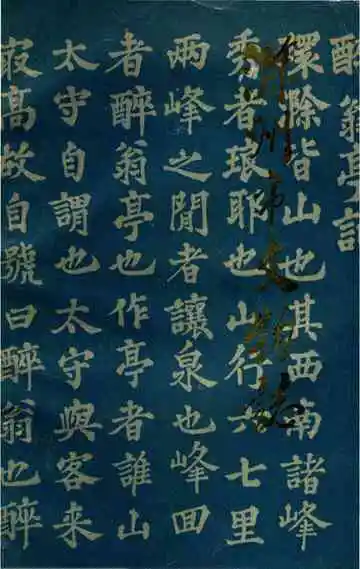 醉翁亭記
環滁皆山也其西南諸峰
秀者琅耶也山行六七里
兩峰之閒者讓泉也峰回
者醉翁亭也作亭者誰山
太守自謂也太守與客来
㝡高故自號曰醉翁也醉
滁州市文物